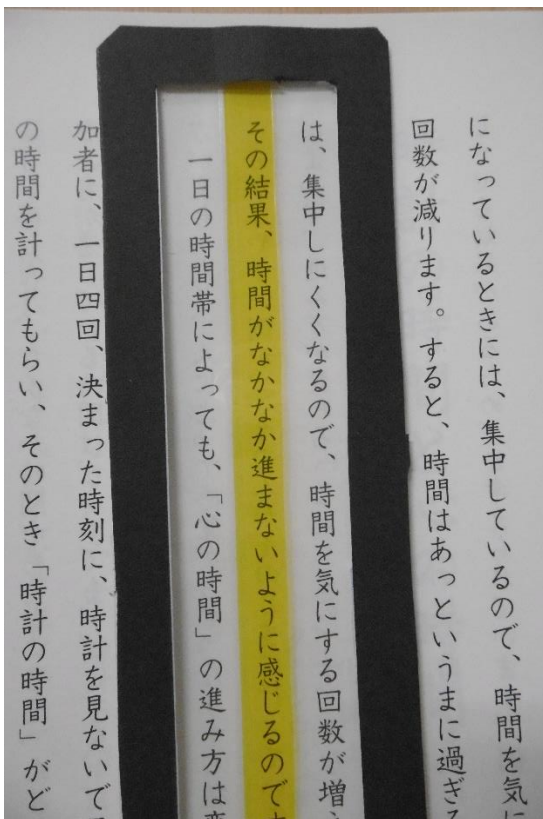 になっているときには、集中しているので、時間を気に
回数が減ります。すると、時間はあっというまに過ぎる
は、集中しにくくなるので、時間を気にする回数が増え
その結果、時間がなかなか進まないように感じるのです
一日の時間帯によっても、「心の時間」の進み方は変
加者に、一日四回、決まった時刻に、時計を見ないで
の時間を計ってもらい、そのとき「時計の時間」がど